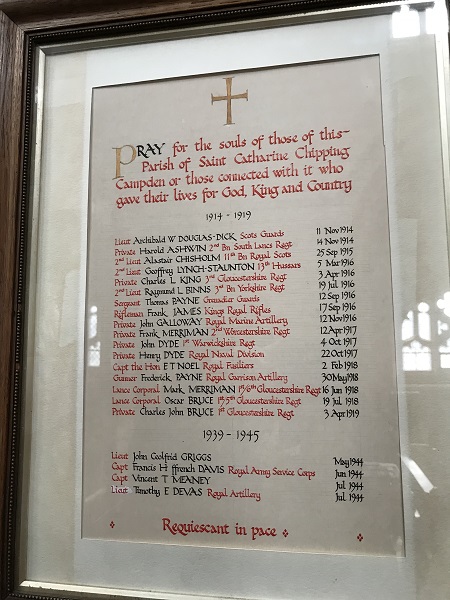 PRAY for the souls of those of this
Parish of Saint Catharine Chipping
Campden or those connected with it who
gave their lives for God, King and Country
1914 - 1919
Lieut Archibald W DOUGLAS-DICK Scots Guards 11 Nov 1914
Private Harold ASHWIN 2nd Bn South Lancs Regt 14 Nov 1914
2nd Lieut Alastair CHISHOLM 11th Bn Royal Scots 25 Sep 1915
2nd Lieut Geoffrey LYNCH-STAUNTON 13th Hussars 5 Mar 1916
Private Charles L KING 3rd Gloucestershire Regt 3 Apr 1916
2nd Lieut Raymund L BINNS 3rd Bn Yorkshire Regt 19 Jul 1916
Sergeant Thomas PAYNE Grenadier Guards 12 Sep 1916
Rifleman Frank JAMES Kings Royal Rifles 17 Sep 1916
Private John GALLOWAY Royal Marine Artillery 12 Nov 1916
Private Frank MERRIMAN 2nd Worcestershire Regt 12 Apr 1917
Private John DYDE 1st Warwickshire Regt 4 Oct 1917
Private Henry DYDE Royal Naval Division 22 Oct 1917
Capt the Hon E T NOEL Royal Fusiliers 2 Feb 1918
Gunner Frederick PAYNE Royal Garrison Artillery 30 May 1918
Lance Corporal Mark MERRIMAN 1st/6th Gloucestershire Regt 16 Jun 1918
Lance Corporal Oscar BRUCE 1st/5th Gloucestershire Regt 19 Jul 1918
Private Charles John BRUCE 1st Gloucestershire Regt 3 Apr 1919
1939 - 1945
Lieut John Coolfrid GRIGGS May 1944
Capt Francis H ffrench DAVIS Royal Army Service Corps Jun 1944
Capt Vincent T MEANEY Jul 1944
Lieut Timothy E DEVAS Royal Artillery Jul 1944
Requiescant in pace